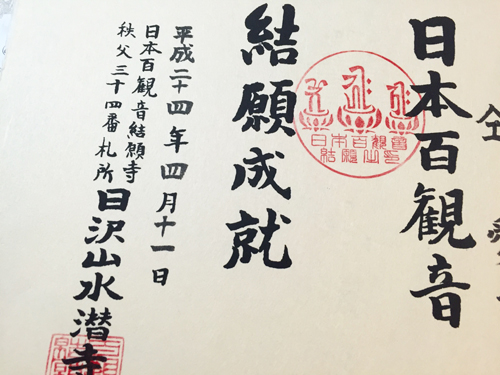 日本百観音
結願成就
平成二十四年四月十一日
日本百観音結願寺
秩父三十四番札所
日沢山水潜寺
日本百観音
結願山印